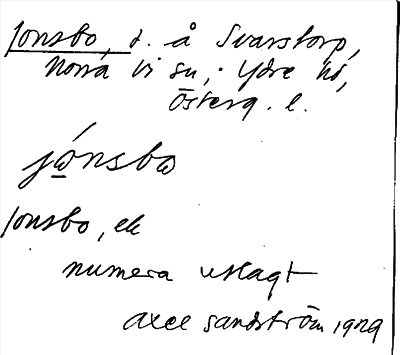 Jonsbo, t. å Svarstorp,
Norra Vi sn, Ydre hd,
Österg. l.
jónsbω
Jonsbo, ek
numera utlagt
Axel Sandström 1929